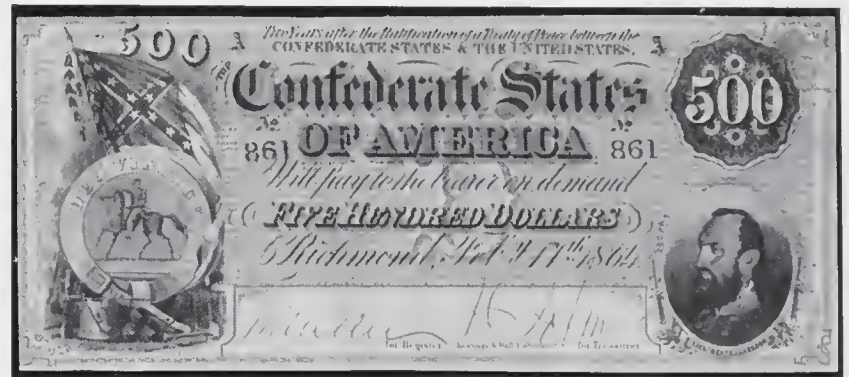 500
A Two Years after the Ratification of a Treaty of Peace between the A
CONFEDERATE STATES & THE UNITED STATES,
Confederate States
500
No. No.
861 OF AMERICA 861
Will pay to the bearer on demand
FIVE HUNDRED DOLLARS
Richmond, Feb'y 17th 1864
For Register For Treasurer